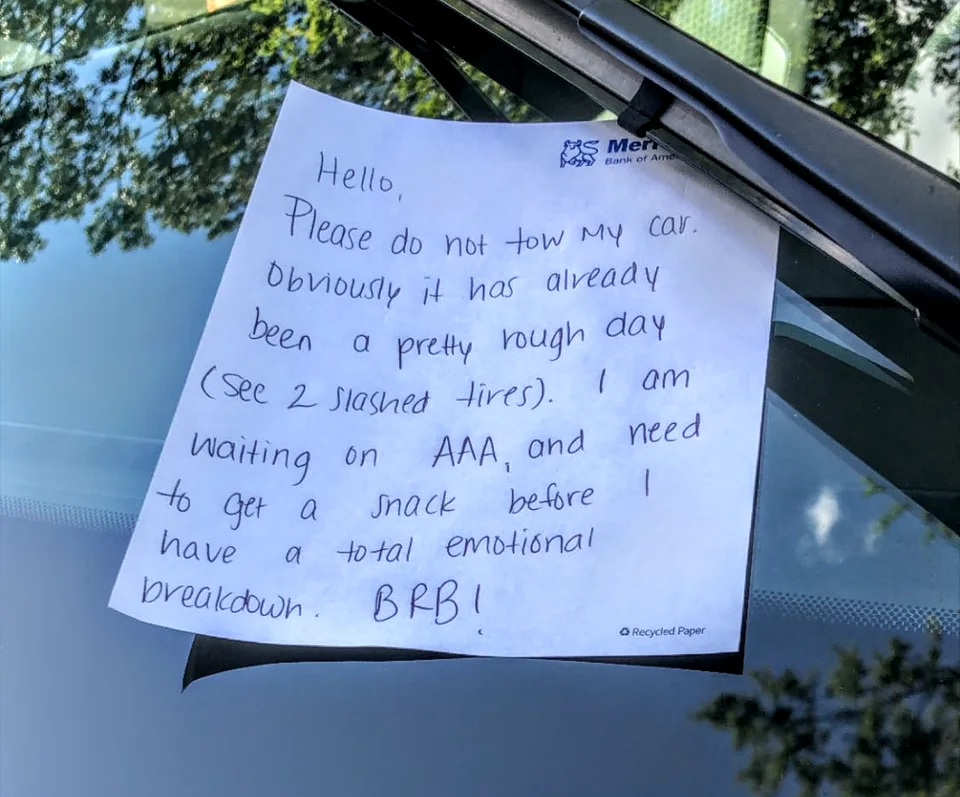 Bank of
Hello,
Please do not tow my car.
Obviously it has already
been a pretty rough day
(see 2 slashed tires). I am
waiting on AAA, and need
to get a snack before I
have a total emotional
breakdown. BRB!
Recycled Paper